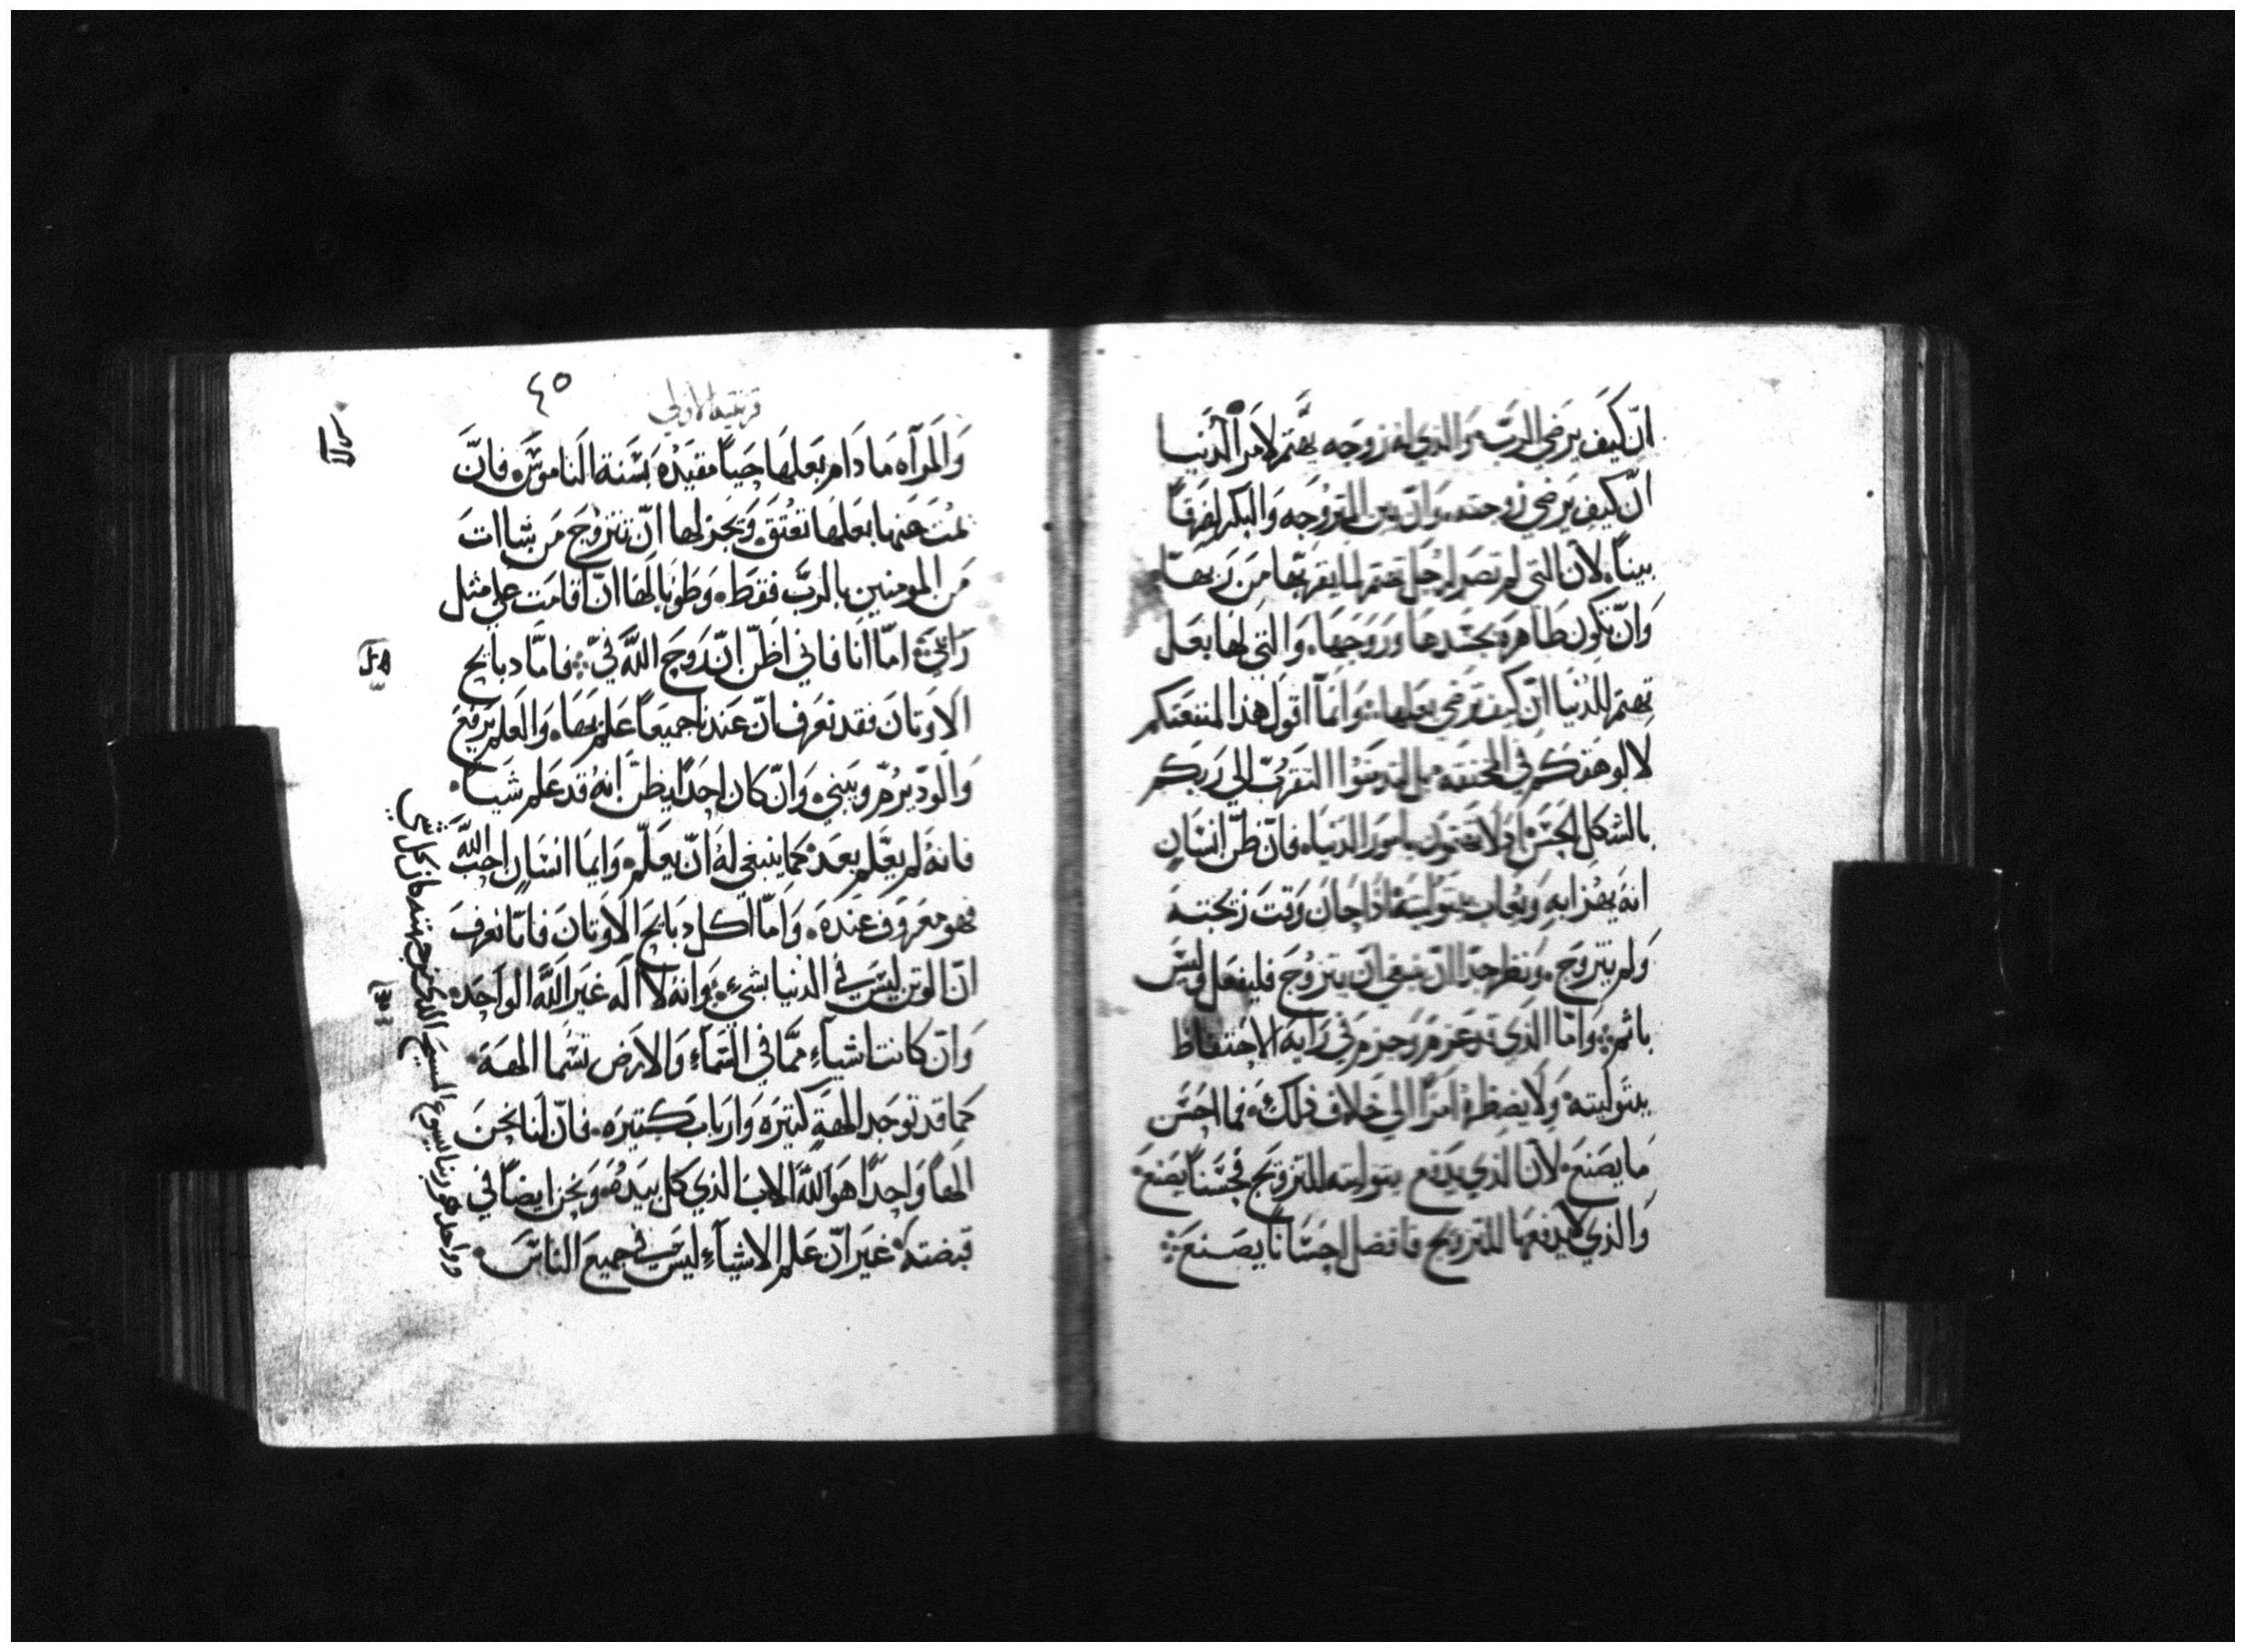 ان كيف يرضي الرب والذي له زوجه يهتم لامر الدنيا
ان كيف يرضي زوجته وان بين المتزوجه والبكر لفرقاً
بيناً لان التي لم تصر لرجل تهتم لما يقربها من ربها
وان تكون طاهره بجسدها وروحها والتي لها بعل
تهتم للدنيا ان كيف ترضي بعلها وانما اقول هذا لمنفعتكم
لا لوهقكم في الخنقه بل لتديموا التقرب الي ربكم
بالشكل الحسن اذ لا تهتمون بامور الدنيا فان ظن انسان
انه يهزا به ويعاب بتوليته اذا حان وقت زيجته
ولم يتزوج ونظر جدا ان ينبغي ان يتزوج فليفعل وليس
باثم واما الذي قد عزم وجزم في رايه الاحتفاظ
ببتوليته ولا يضطره امراً الي خلاف ذلك فما احسن
ما يصنع لان الذي يدفع بتولته للتزويج فحسناً يصنع
والذي لا يدفعها للتزويج فافضل احساناً يصنع
٤٥
قرنتيه الاولي
والمرآه ما دام بعلها حياً مقيده بسنة الناموس فان
مت عنها بعلها تعتق ويجز لها ان تتزوج من شاات
من المومنين بالرب فقط وطوبا لها ان اقامت علي مثل
رائي اما انا فاني اظن ان روح الله في فاما دبايح
الاوتان فقد نعرف ان عندنا جميعاً علم بها والعلم يرفع
والود يرم ويبني وان كان احداً يظن انه قد علم شياً
فانه لم يعلم بعد كما ينبغي له ان يعلم وايما انسان احب الله
فهو معروف عنده واما اكل دبايح الاوتان فانا نعرف
ان الوتن ليس في الدنيا بشيء وانه لا اله غير الله الواحد
وان كانت اشياء مما في السماء والارض تسما الهة
كما قد توجد الهة كتيره وارباب كتيره فان لنا نحن
الهاً واحداً هو الله الاب الذي كل بيده ونحن ايضاً في
قبضته غير ان علم الاشياء ليس في جميع الناس
وواحد هو ربنا يسوع المسيح الذي من جهته كان كل شي